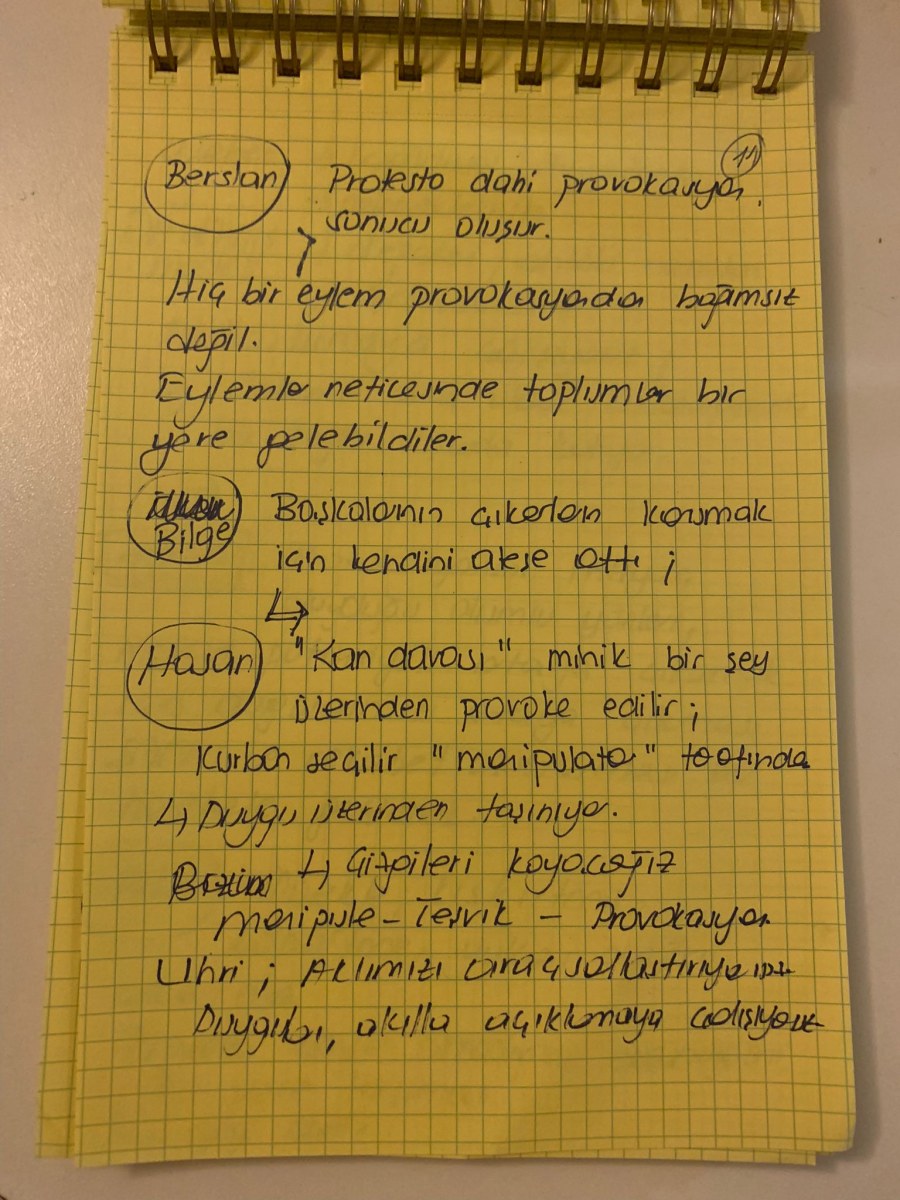 11
Berslan Protesto dahi provokasyon
sonucu oluşur.
Hiç bir eylem provokasyondan bağımsız
değil.
Eylemler neticesinde toplumlar bir
yere gelebildiler.
Bilge Başkalarının çıkarların korumak
için kendini ateşe attı ;
↳ 
Hasan "Kan davası" minik bir şey
üzerinden provoke edilir ;
Kurban seçilir "manipulatör" tarafından
↳ Duygu üzerinden taşınıyor.
Bizim ↳ Çizgileri koyacağız
manipule - Teşvik - Provokasyon
Uhri ; Aklımızı araçsallaştırıyoruz
Duyguları, akılla açıklamaya çalışıyoruz